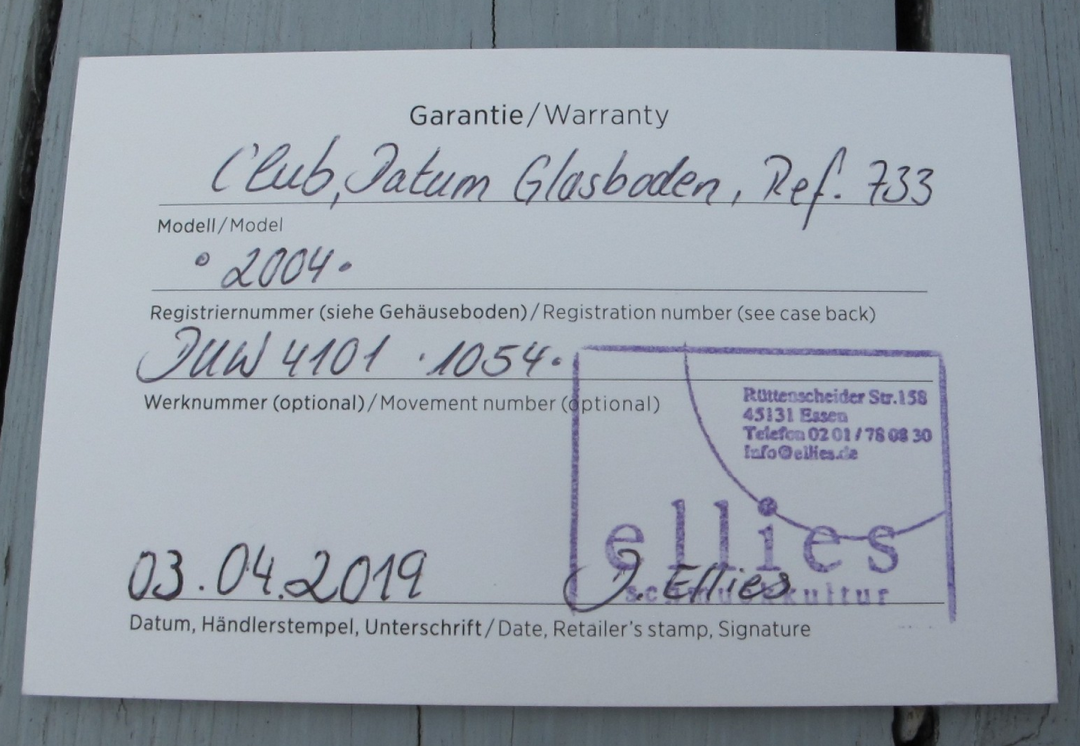 Garantie/Warranty
Club, Datum Glasboden, Ref. 733
Modell/Model
° 2004 •
Registriernummer (siehe Gehäuseboden)/Registration number (see case back)
DUW 4101 · 1054 •
Werknummer (optional)/Movement number (optional)
Rüttenscheider Str.158
45131 Essen
Telefon 02 01 / 78 08 30
Info@ellies.de
ellies
schmuckkultur
03.04.2019 J. Ellies
Datum, Händlerstempel, Unterschrift/Date, Retailer's stamp, Signature